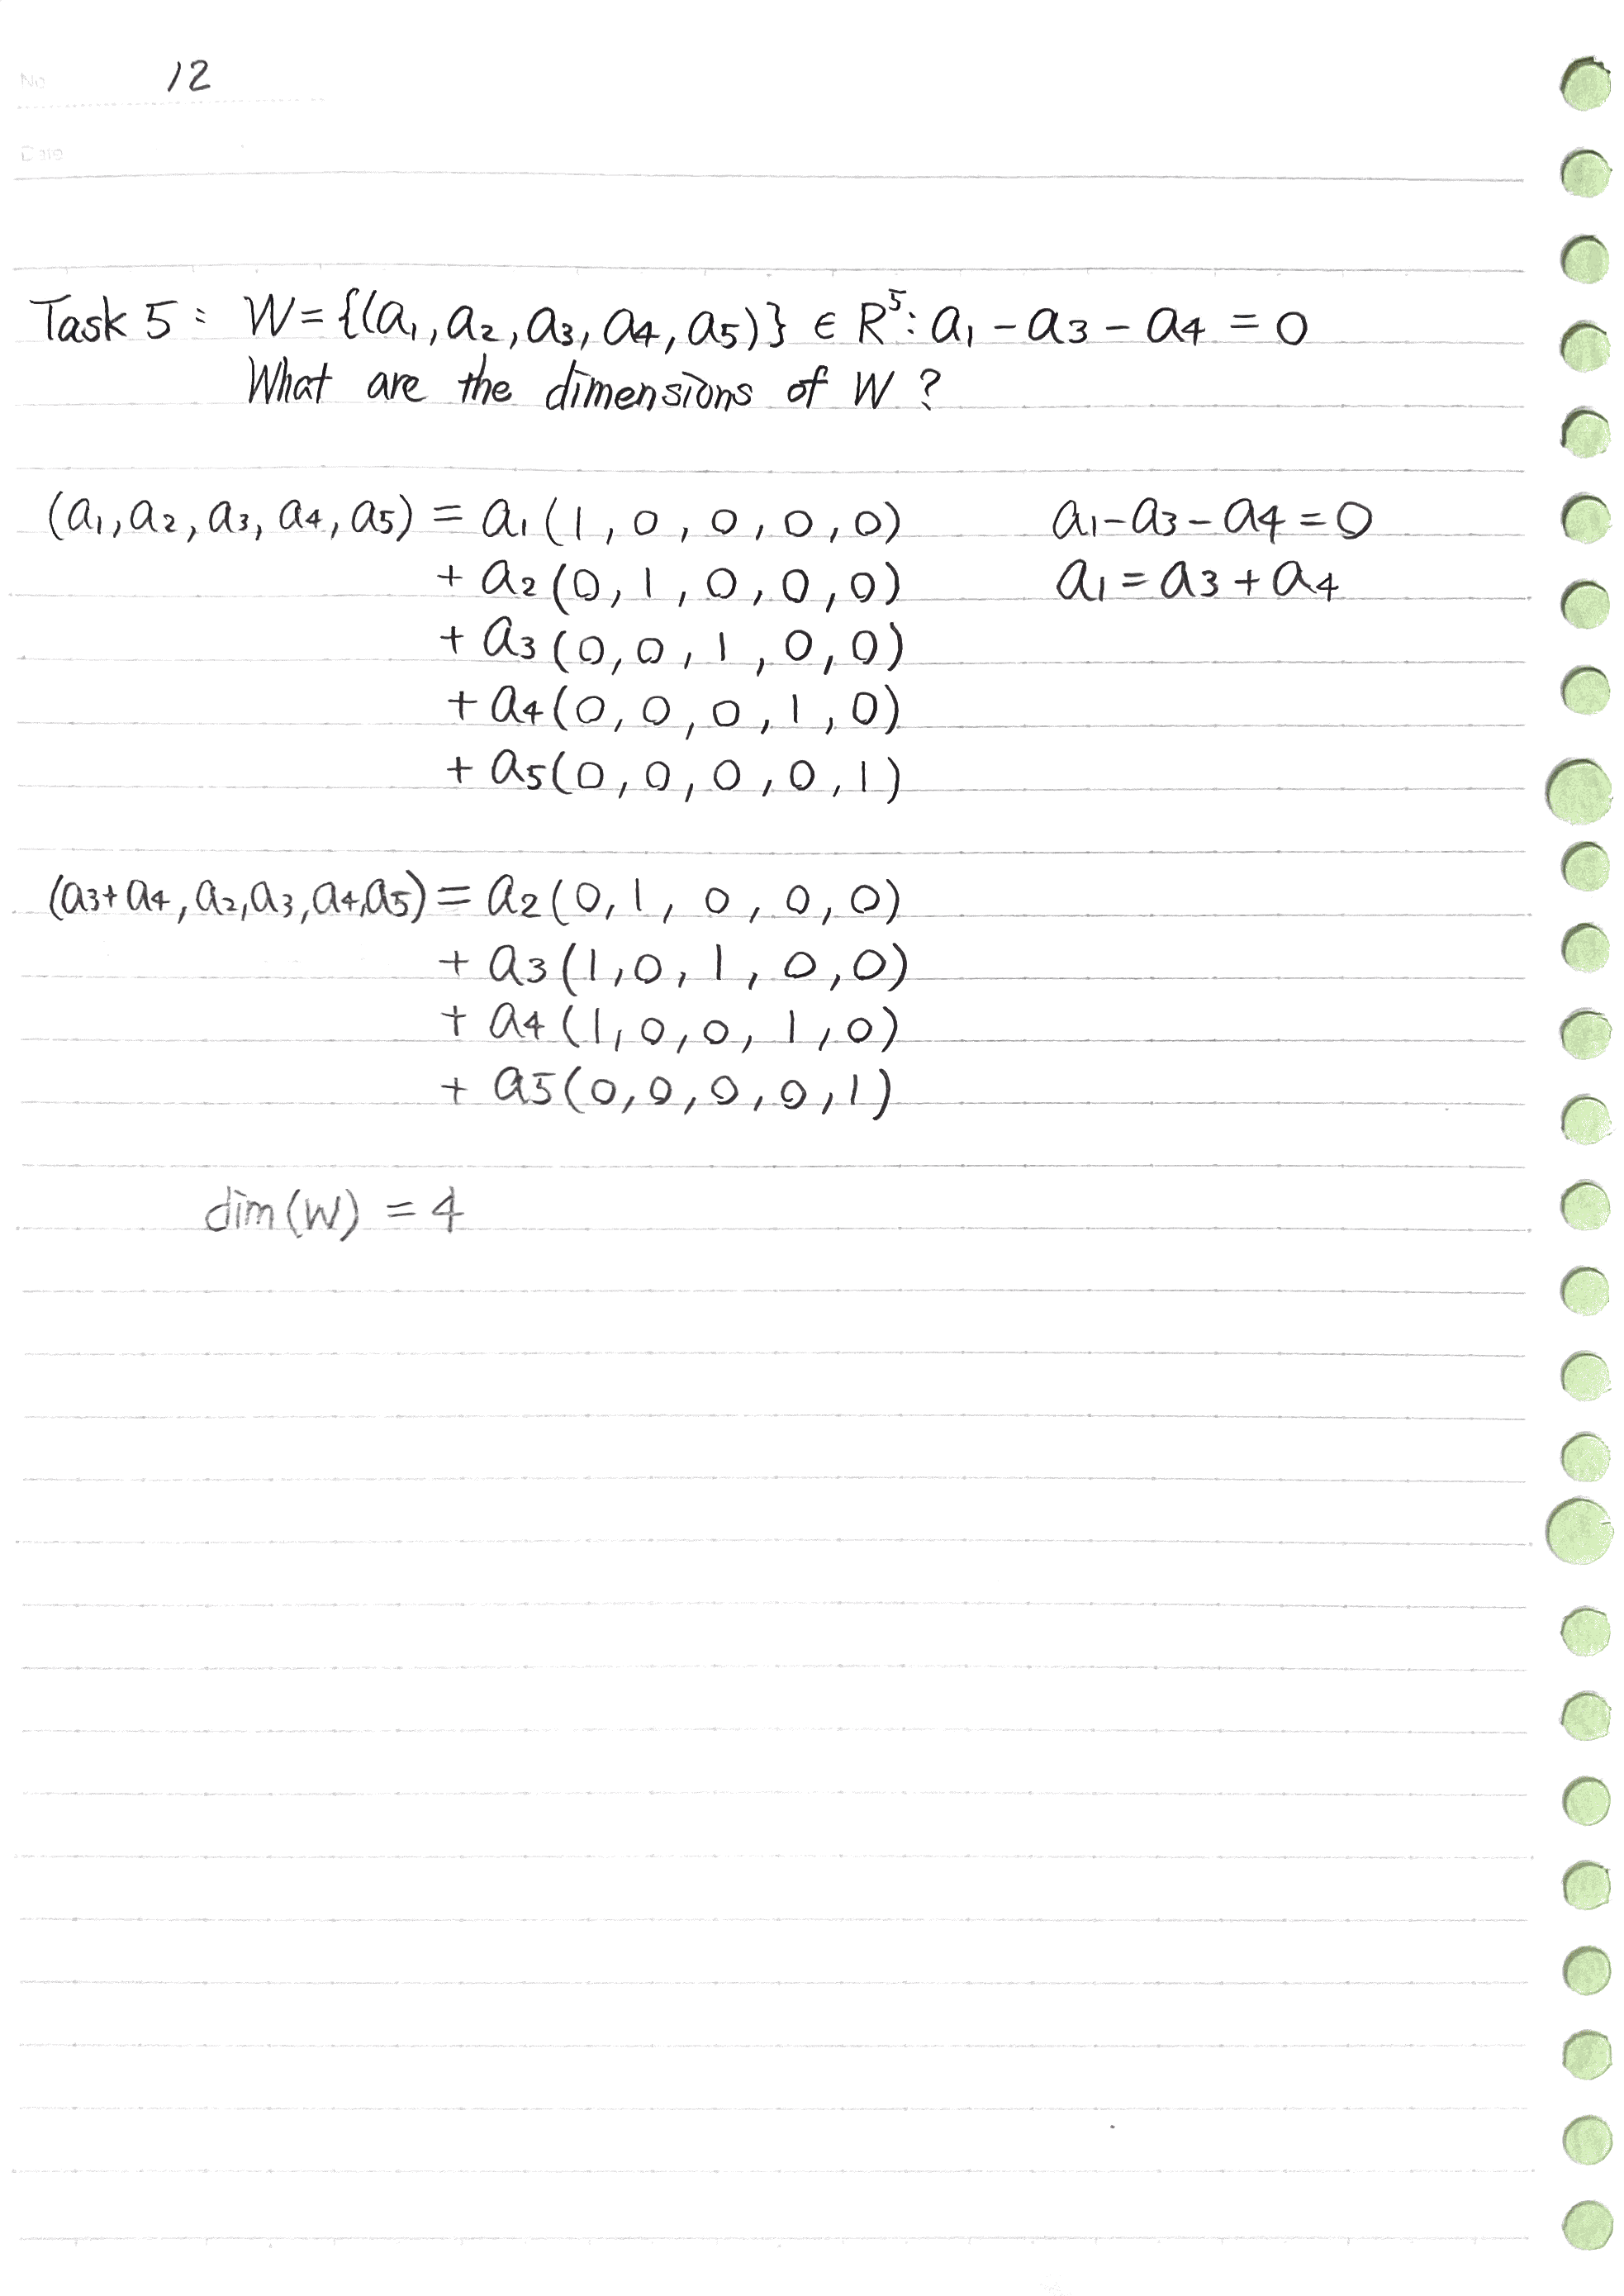 No 12
Date
Task 5 : W = {(a₁, a₂, a₃, a₄, a₅)} ∈ R⁵ : a₁ - a₃ - a₄ = 0
What are the dimensions of W ?
(a₁, a₂, a₃, a₄, a₅) = a₁(1, 0, 0, 0, 0) a₁ - a₃ - a₄ = 0
+ a₂(0, 1, 0, 0, 0) a₁ = a₃ + a₄
+ a₃(0, 0, 1, 0, 0)
+ a₄(0, 0, 0, 1, 0)
+ a₅(0, 0, 0, 0, 1)
(a₃+a₄, a₂, a₃, a₄, a₅) = a₂(0, 1, 0, 0, 0)
+ a₃(1, 0, 1, 0, 0)
+ a₄(1, 0, 0, 1, 0)
+ a₅(0, 0, 0, 0, 1)
dim(W) = 4